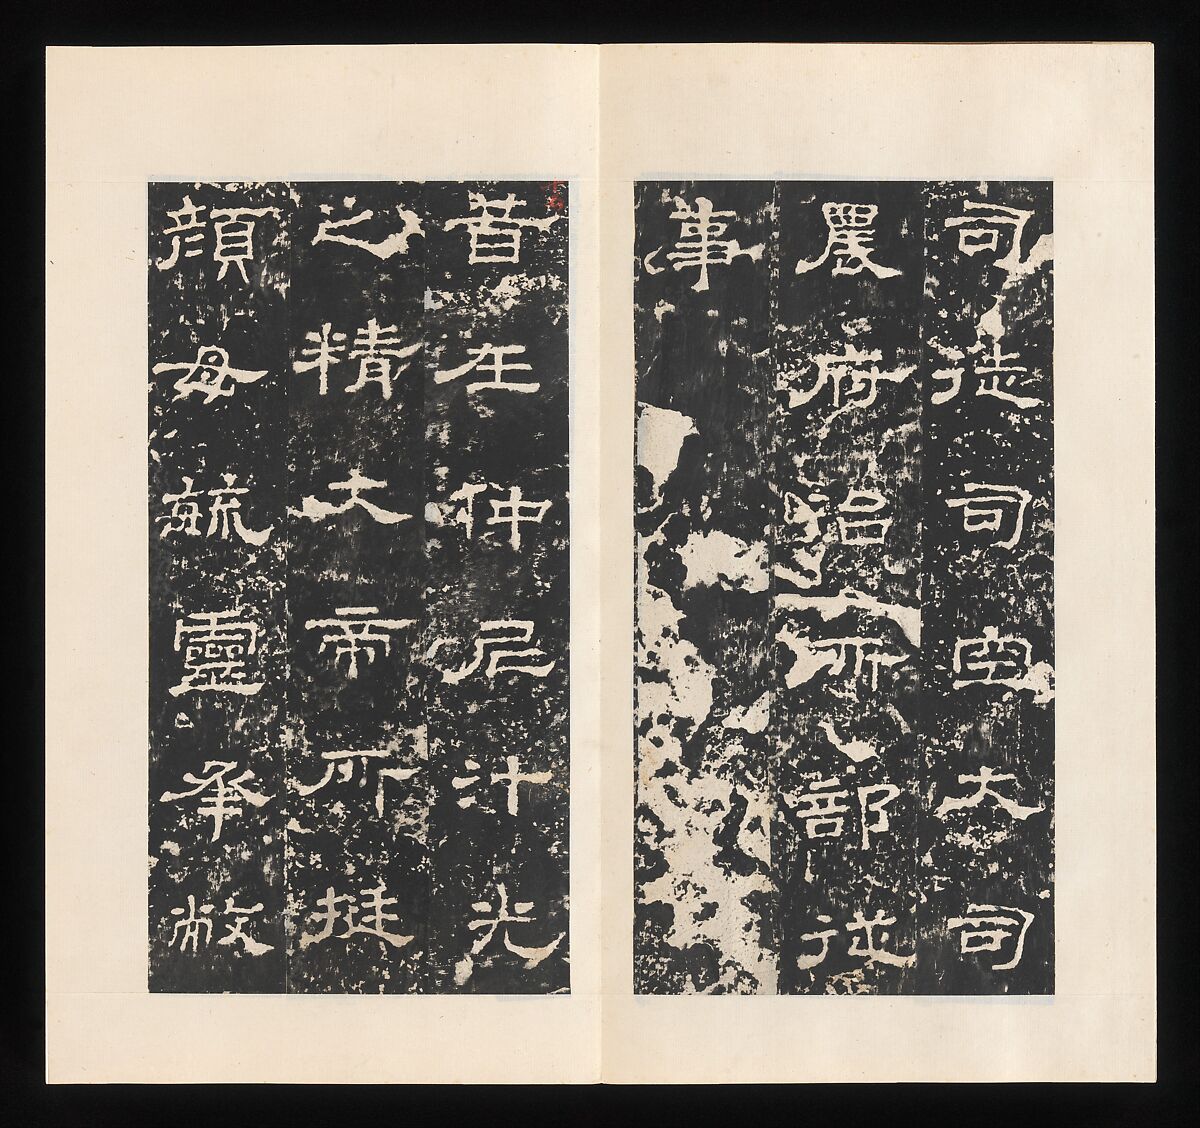 司徒司空大司
農府治所部從
事
昔在仲尼汁光
之精大帝所挺
顏母毓靈承敝